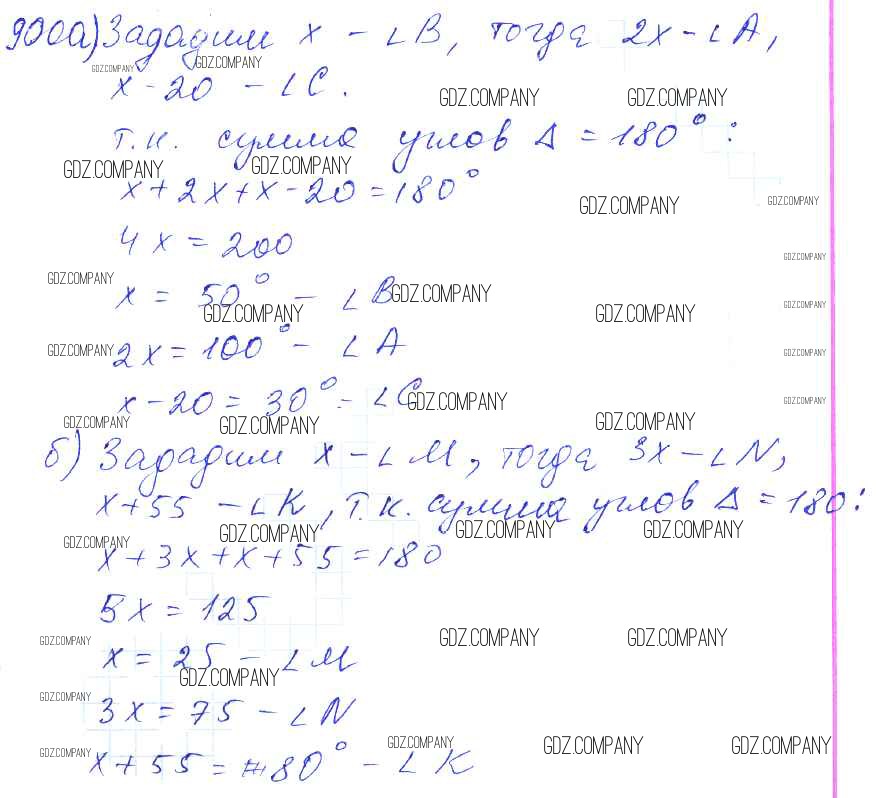 900а) Зададим x - ∠B, тогда 2x - ∠A,
GDZ.COMPANY GDZ.COMPANY
x - 20 - ∠C.
GDZ.COMPANY GDZ.COMPANY
т.к. сумма углов Δ = 180°:
GDZ.COMPANY GDZ.COMPANY
x + 2x + x - 20 = 180°
GDZ.COMPANY GDZ.COMPANY
4x = 200
GDZ.COMPANY
GDZ.COMPANY GDZ.COMPANY
x = 50° - ∠B
GDZ.COMPANY GDZ.COMPANY GDZ.COMPANY
2x = 100° - ∠A
GDZ.COMPANY GDZ.COMPANY
x - 20 = 30° - ∠C
GDZ.COMPANY GDZ.COMPANY
GDZ.COMPANY GDZ.COMPANY GDZ.COMPANY
б) Зададим x - ∠M, тогда 3x - ∠N,
x + 55 - ∠K, т.к. сумма углов Δ = 180:
GDZ.COMPANY GDZ.COMPANY GDZ.COMPANY GDZ.COMPANY
x + 3x + x + 55 = 180
5x = 125
GDZ.COMPANY GDZ.COMPANY GDZ.COMPANY
x = 25 - ∠M
GDZ.COMPANY
GDZ.COMPANY
3x = 75 - ∠N
GDZ.COMPANY GDZ.COMPANY GDZ.COMPANY GDZ.COMPANY
x + 55 = 80° - ∠K